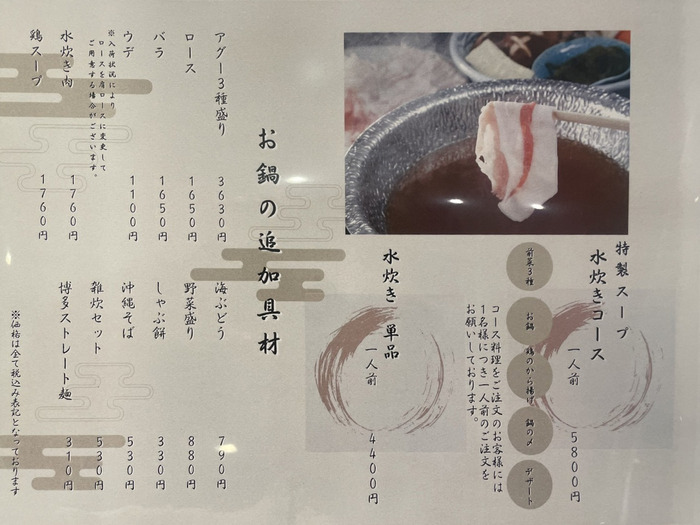 特製スープ
水炊きコース
一人前
5800円
前菜3種
お鍋
鶏のから揚げ
鍋の〆
デザート
コース料理をご注文のお客様には
1名様につき一人前のご注文を
お願いしております。
水炊き 単品
一人前
4400円
お鍋の追加具材
アグー3種盛り 3630円
ロース 1650円
バラ 1650円
ウデ 1100円
※入荷状況により
ロースを肩ロースに変更して
ご用意する場合がございます。
水炊き肉 1760円
鶏スープ 1760円
海ぶどう 790円
野菜盛り 880円
しゃぶ餅 330円
沖縄そば 530円
雑炊セット 530円
博多ストレート麺 310円
※価格は全て税込み表記となっております